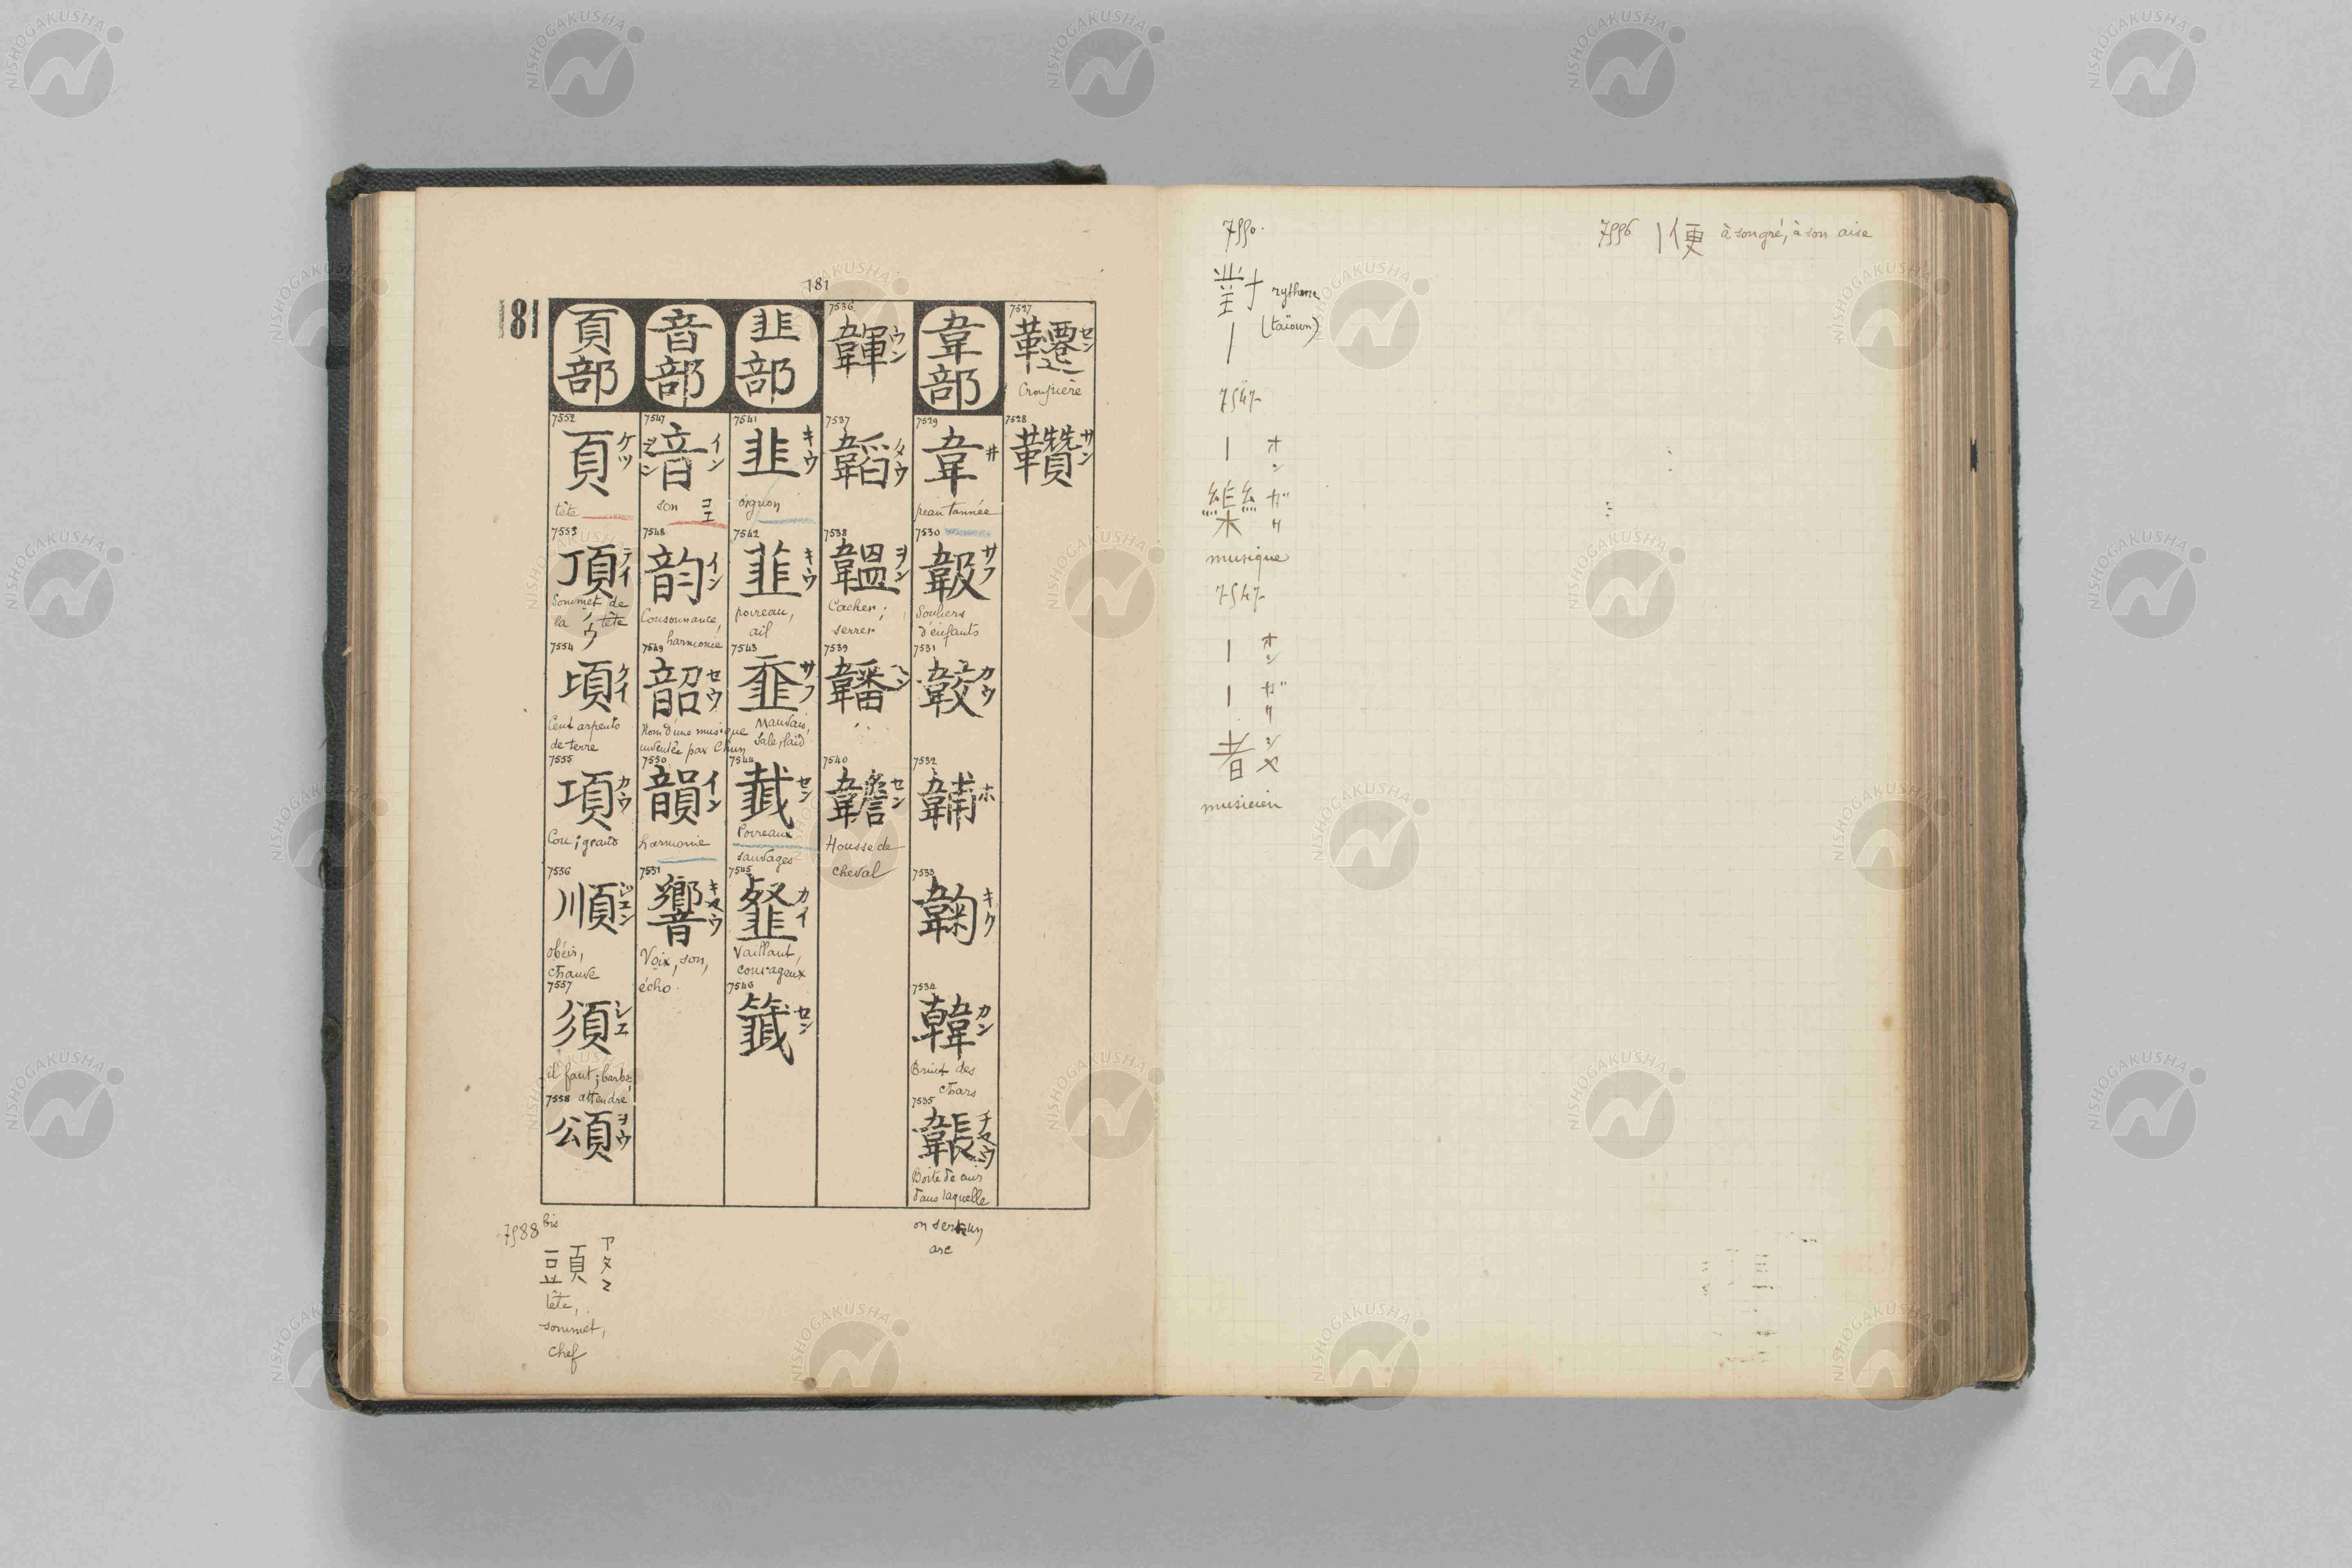 181
181
7527
韆 セン
Croupière
7528
韉 サン
韋部
7529
韋 ヰ
peau tannée
7530
靸 サフ
Souliers
d'enfants
7531
䩋 カウ
7532
ホ
7533
キク
7534
韓 カン
Bruit des
chars
7535
韔 チヤウ
Boite de cuir
dans laquelle
on serre un
arc
7536
韗 ウン
7537
韜 タウ
7538
韞 ヲン
Cacher;
serrer
7539
7540
韂 セン
Housse de
cheval
韭部
7541
韭 キウ
oignon
7542
韮 キウ
poireau,
ail
7543
サフ
Mauvais,
sale, laid
7544
韱 セン
Poireaux
sauvages
7545
韰 カイ
Vaillant,
courageux
7546
籤 セン
音部
7547
音 イン
son コエ
7548
韵 イン
Consonnance,
harmonie
7549
韶 セウ
Nom d'une musique
inventée par Chun
7550
韻 イン
harmonie
7551
響 キヤウ
Voix, son,
écho.
頁部
7552
頁 ケツ
tête
7553
頂 テイ
Sommet de
la tête
7554
頃 ケイ
Cent arpents
de terre
7555
項 カウ
Cou; grand
7556
順 ジエン
obéir,
chauve
7557
須 シエ
il faut; barbe,
attendre
7558
頌 ヨウ
7588 bis
頭 アタマ
tête,
sommet,
chef
7550.
對| rythme
(taïoun)
7547
|樂 オンガク
musique
7547
||者 オンガクシヤ
musicien
7556 |便 à son gré, à son aise
NISHOGAKUSHA